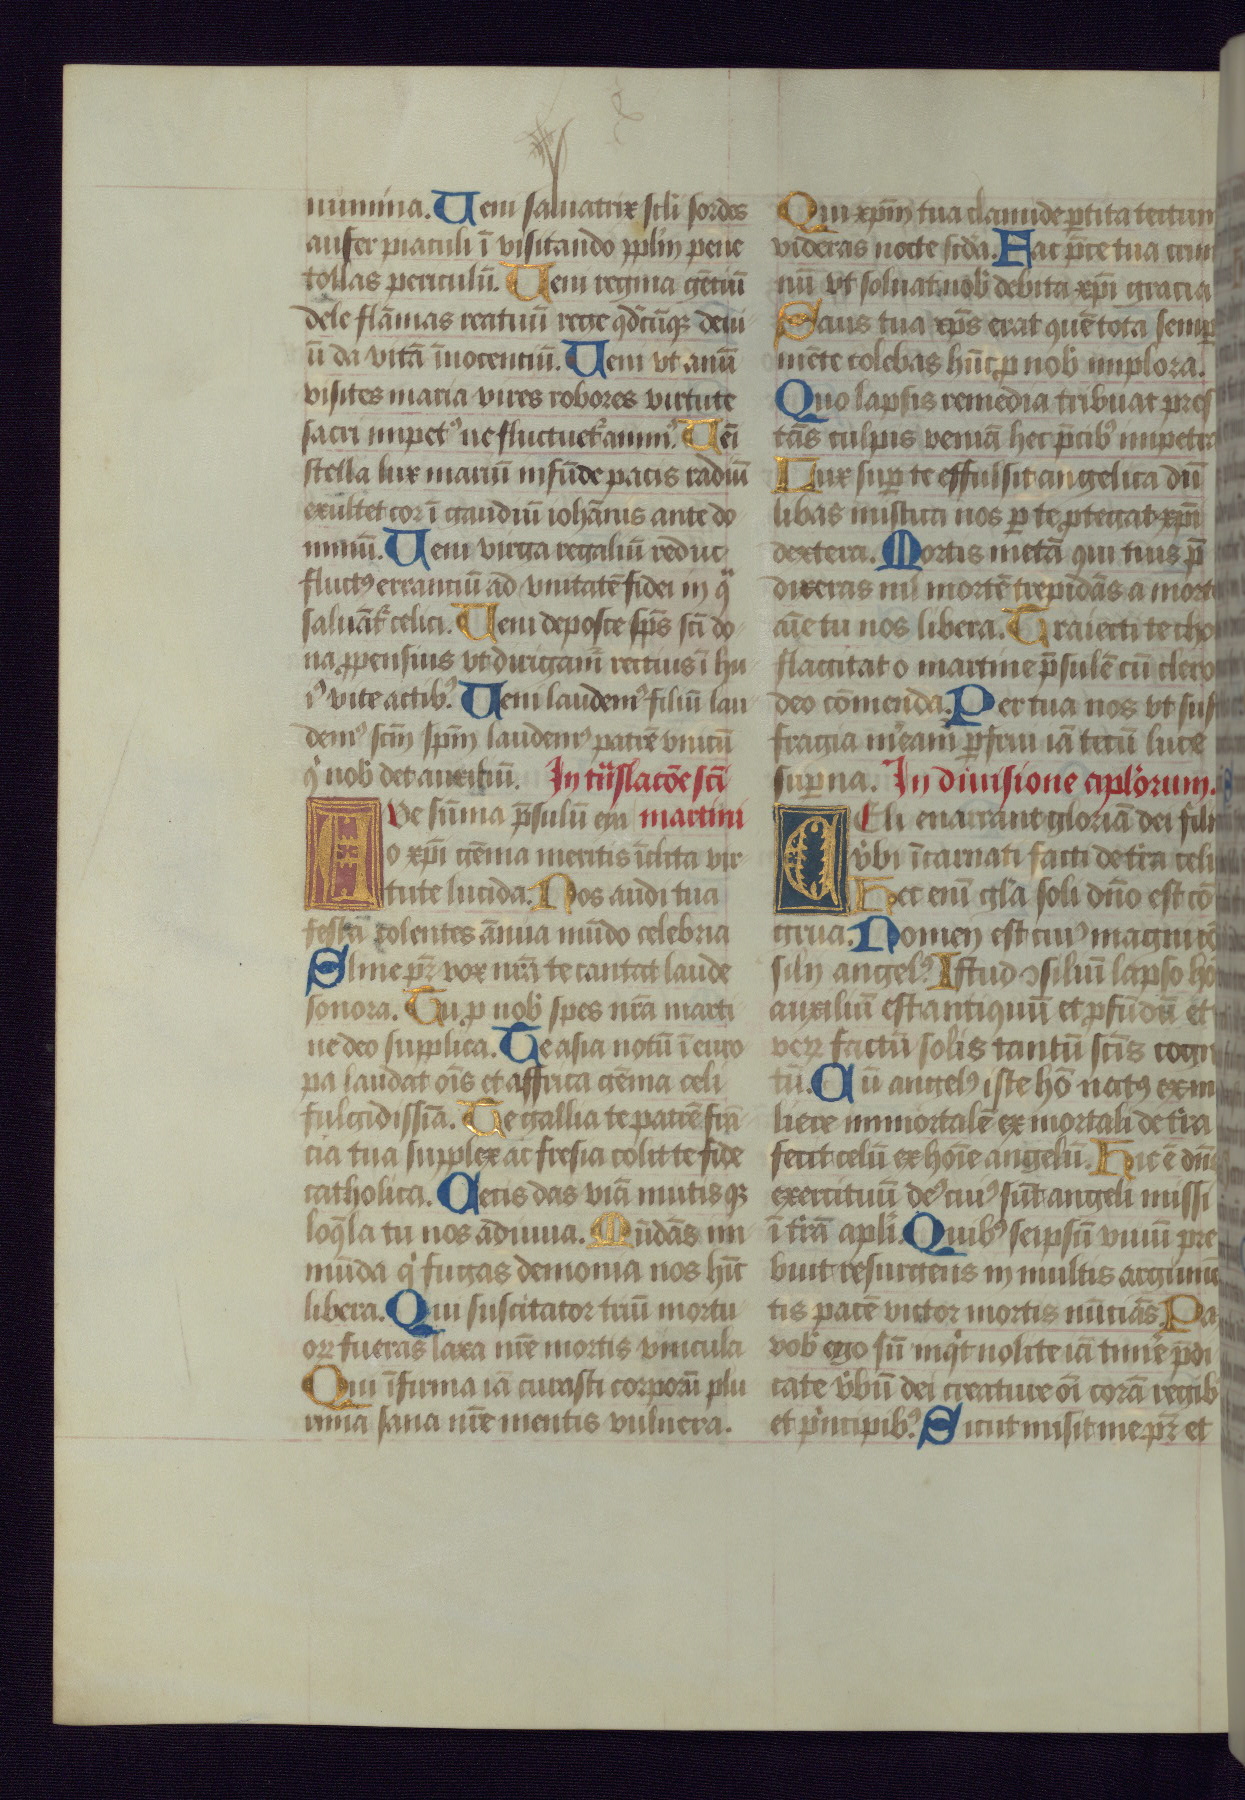 numina. Ueni saluatrix scli sordes
aufer piaculi ī visitando pplm̄ pene
tollas periculū. Ueni regina gētiū
dele flāmas reatuū rege qdcūq3 deui
ū da vitā īnocentiū. Ueni vt anū
visites maria vires robores virtute
sacri impetꝰ ne fluctuet͛ animꝰ. Ueī
stella lux mariū infūde pacis radiū
exultet cor ī gaudiū iohānis ante do
minū. Ueni virga regaliū reduc
fluctꝰ errantiū ad vnitatē fidei in q̄
saluāt͛ celici. Ueni deposce sp̄s scī do
na ꝓpensius vt dirigam͛ rectius ī hu
iꝰ vite actibꝰ. Ueni laudemꝰ filiū lau
demꝰ scm̄ spm̄ laudemꝰ patrē vnicū
q nob̄ det auxiliū. In trāslacōe scī
Ave sūma p̄sulū gēm martini
o xp̄i gēma meritis īclita vir
tute lucida. Nos audi tua
festa colentes ānua mūdo celebria
Alme pr̄ vox nrā te cantat laude
sonora. Tu ꝓ nob̄ spes nrā marti
ne deo supplica. Te asia notū ī euro
pa laudat oīs et affrica gēma celi
fulgidissīa. Te gallia te patrē frā
cia tua supplex ac fresia colit te fide
catholica. Cecis das viā mutisq3
loq̄la tu nos adiuua. Mūdās im
mūda q fugas demonia nos hīc
libera. Qui suscitator triū mortu
orꝝ fueras laxa nrē mortis vincula
Qui īfirma iā curasti corporū plu
rima sana nrē mentis vulnera.
Qui xpm̄ tua clamide ꝑtita tectum
videras nocte scda. Fac p̄ce tua crim
nū vt soluat nob̄ debita xp̄i gracia
Salus tua xp̄s erat quē tota semper
mēte colebas hūc ꝓ nob̄ implora.
Quo lapsis remedia tribuat pres
tās culpis veniā hec p̄cibꝰ impetra
Lux suꝑ te effulsit angelica dū
libas mistica nos ꝑ te ꝓtegat xp̄i
dextera. Mortis metā qui tuis p̄
dixeras nil mortē trepidās a morte
aīe tu nos libera. Traiecti te cho
flagitat o martine p̄sulē cū clero
deo cōmenda. Per tua nos vt suf
fragia mēam ꝑfrui iā tecū luce
suꝑna. In diuisione aplorum.
Celi enarrant gloriā dei filii
v̄bi īcarnati facti de tra celi
Hec enī gla soli dn̄o est cō
grua. Nomen est eiꝰ magni cō
silii angelꝰ. Istud ꝯsiliū lapso hōi
auxiliū est antiquū et ꝓfūdū et
verꝝ factū solis tantū scīs cogni
tū. Cū angelꝰ iste hō natꝰ ex mu
liere immortalē ex mortali de tra
fecit celū ex hoīe angelū. Hic ē dn̄s
exercituū deꝰ cuiꝰ sūt angeli missi
ī trā apli. Quibꝰ seipsū viuū pre
buit resurgens in multis argumē
tis pacē victor mortis nūciās. Pax
vob̄ ego sū inqt nolite iā timē p̄di
cate v̄bū dei creature oī corā regibꝰ
et p̄ncipibꝰ. Sicut misit me pr̄ et